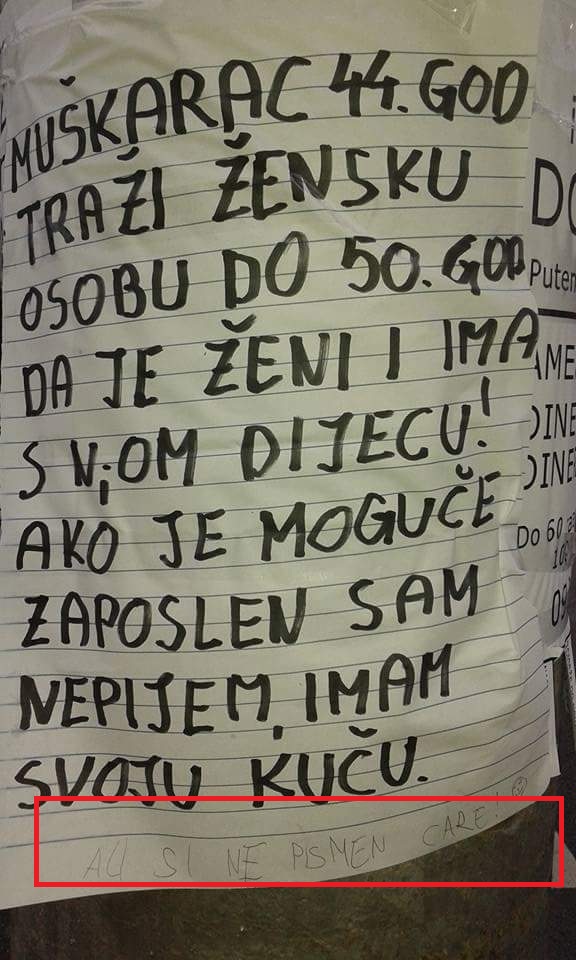 MUŠKARAC 44. GOD
TRAŽI ŽENSKU
OSOBU DO 50. GOD
DA JE ŽENI I IMA
S NjOM DIJECU!
AKO JE MOGUČE
ZAPOSLEN SAM
NEPIJEM, IMAM
SVOJU KUČU.
ALI SI NE PISMEN CARE! ☺
Do 60